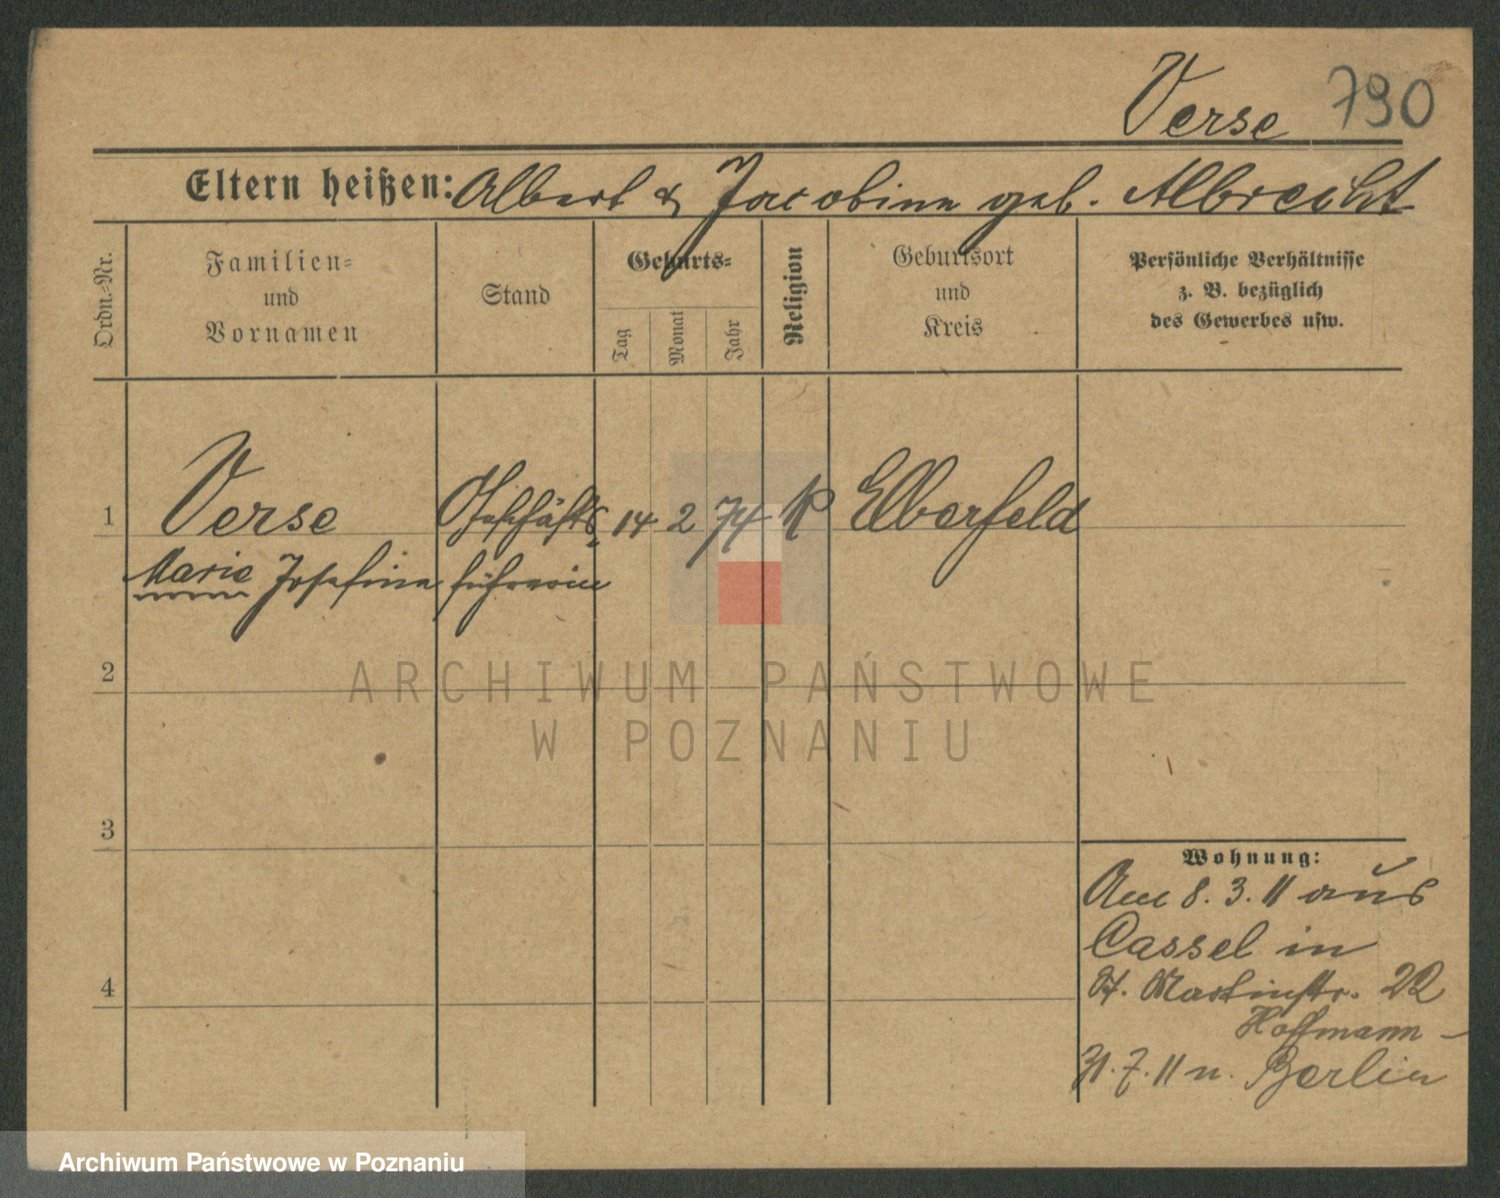 Verse 790
Eltern heißen: Albert & Jacobine geb. Albrecht
Ordn.-Nr.
Familien-
und
Vornamen
Stand
Geburts-
Tag
Monat
Jahr
Religion
Geburtsort
und
Kreis
Persönliche Verhältnisse
z. B. bezüglich
des Gewerbes usw.
1 Verse Geschäfts- 14 2 74 K Elberfeld
Marie Josefine führerin
2
3
4
Wohnung:
Am 8. 3. 11 aus
Cassel in
St. Martinstr. 22
Hoffmann -
31. 7. 11 n. Berlin
ARCHIWUM PAŃSTWOWE
W POZNANIU
Archiwum Państwowe w Poznaniu